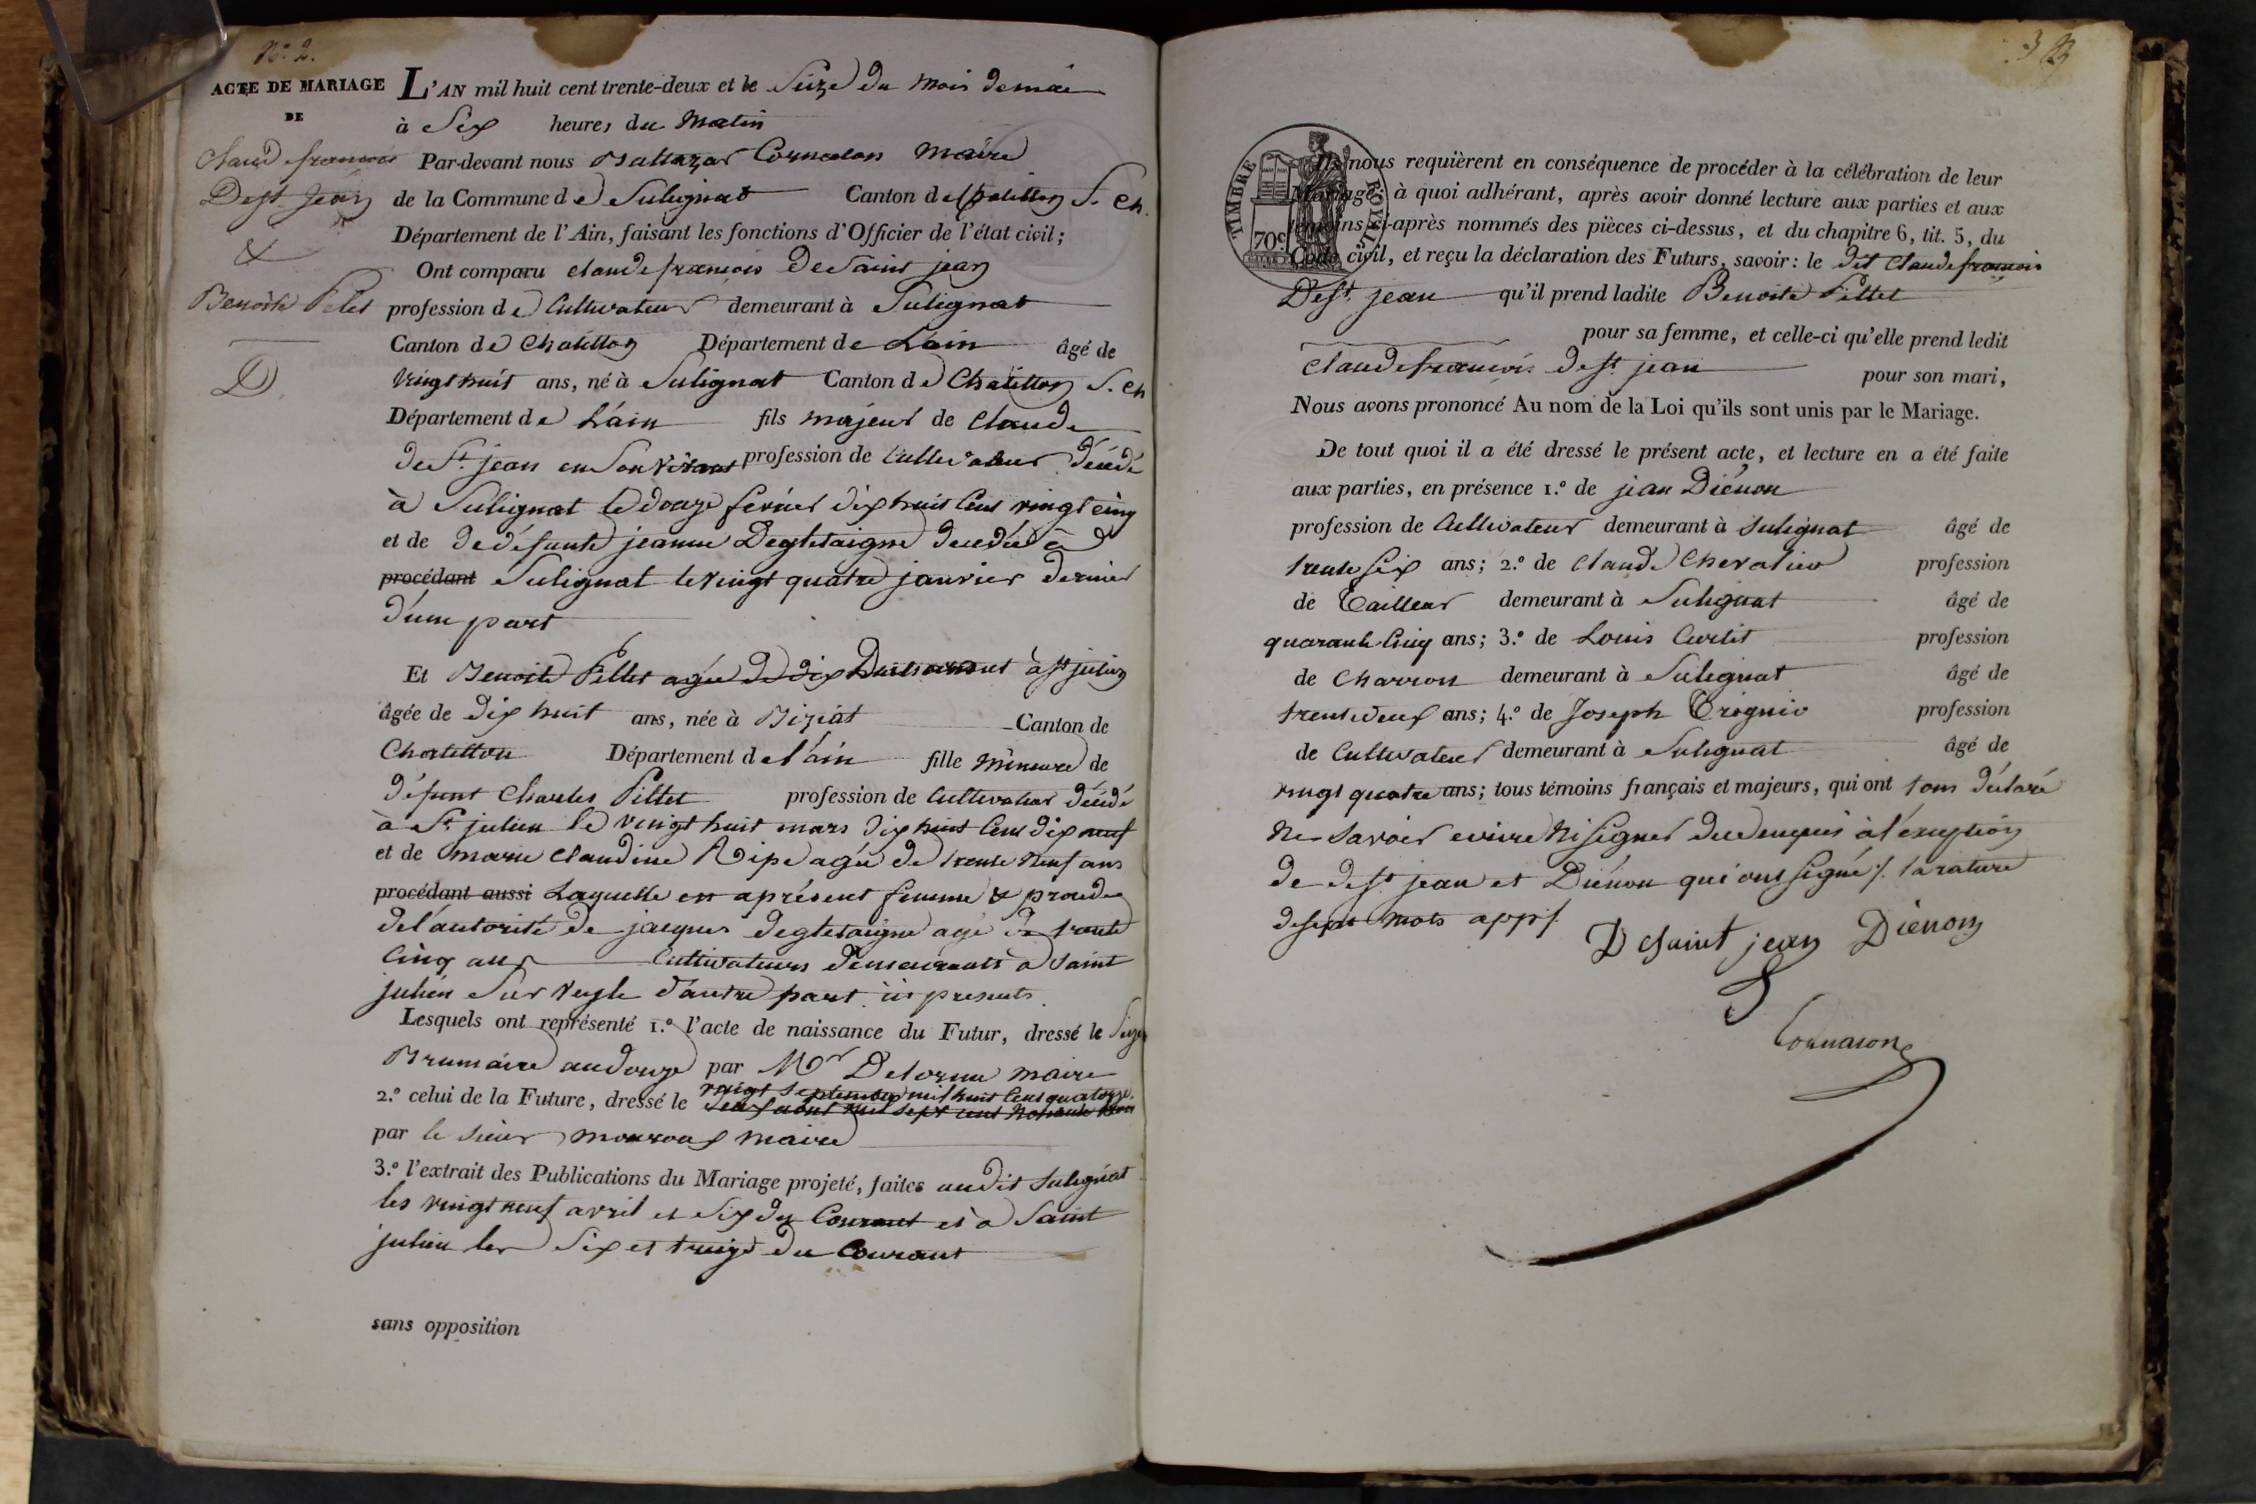 N.o 2.
ACTE DE MARIAGE
DE
Claude francois
De st. Jean
&
Benoite Pelet
D
L'AN mil huit cent trente-deux et le Seize du mois demai
à Six heures du Matin
Par-devant nous Baltazar Cornaton Maire
de la Commune de Sulignat Canton de Chatillon S. Ch.
Département de l'Ain, faisant les fonctions d'Officier de l'état civil;
Ont comparu claude francois De Saint jean
profession de Cultivateur demeurant à Sulignat
Canton de Chatillon Département de Láin âgé de
vingt huit ans, né à Sulignat Canton de Chatillon S. Ch
Département de Láin fils majeur de Claude
de St. jean en Son vivant profession de Cultivateur décédé
à Sulignat le douze fevrier dix huit Cent vingt cinq
et de de défunte jeanne Degletaigne decedée à
procédant Sulignat le vingt quatre janvier dernier
d'une part
Et Benoite Pillet agée de dix huit à st julien
âgée de dix huit ans, née à Biziat Canton de
Chatillon Département de láin fille mineure de
défunt Charles Pillet profession de Cultivateur décédé
à St. julien le vingt huit mars dix huit Cent dix neuf
et de marie Claudine Ripe agée de trente neuf ans
procédant aussi Laquelle est aprésent femme & procede
de l'autorité de jacques degletaigne agé de trente
Cinq ans Cultivateurs demeurants à Saint
julien Sur Veyle d'autre part ici presents.
Lesquels ont représenté 1.o l'acte de naissance du Futur, dressé le Seize
Brumaire an douze par Mr Delorme maire
2.o celui de la Future, dressé le vingt Septembre mil huit Cent quatorze.
aout mil sept cent nonante
par le Sieur monroux maire
3.o l'extrait des Publications du Mariage projeté, faites audit Sulignat
les vingt neuf avril et Six du Courant et à Saint
julien les Six et treize du Courant
sans opposition
3
TIMBRE ROYAL
70c
Ils nous requièrent en conséquence de procéder à la célébration de leur
Mariage: à quoi adhérant, après avoir donné lecture aux parties et aux
témoins ci-après nommés des pièces ci-dessus, et du chapitre 6, tit. 5, du
Code civil, et reçu la déclaration des Futurs, savoir: le dit Claude francois
De st. jean qu'il prend ladite Benoite Pillet
pour sa femme, et celle-ci qu'elle prend ledit
Claude francois de st. jean pour son mari,
Nous avons prononcé Au nom de la Loi qu'ils sont unis par le Mariage.
De tout quoi il a été dressé le présent acte, et lecture en a été faite
aux parties, en présence 1.o de jean Diénon
profession de Cultivateur demeurant à Sulignat âgé de
trente six ans; 2.o de Claude Chevalier profession
de Tailleur demeurant à Sulignat âgé de
quarante Cinq ans; 3.o de Louis Curtit profession
de Charron demeurant à Sulignat âgé de
trente deux ans; 4.o de Joseph profession
de Cultivateur demeurant à Sulignat âgé de
vingt quatre ans; tous témoins français et majeurs, qui ont tous déclaré
ne Savoir ecrire ni Signer de ce enquis à l'exception
de de st. jean et Diénon qui ont Signé /. la rature
de sept mots app/.
DeSaint jean Diénon
Cornaton